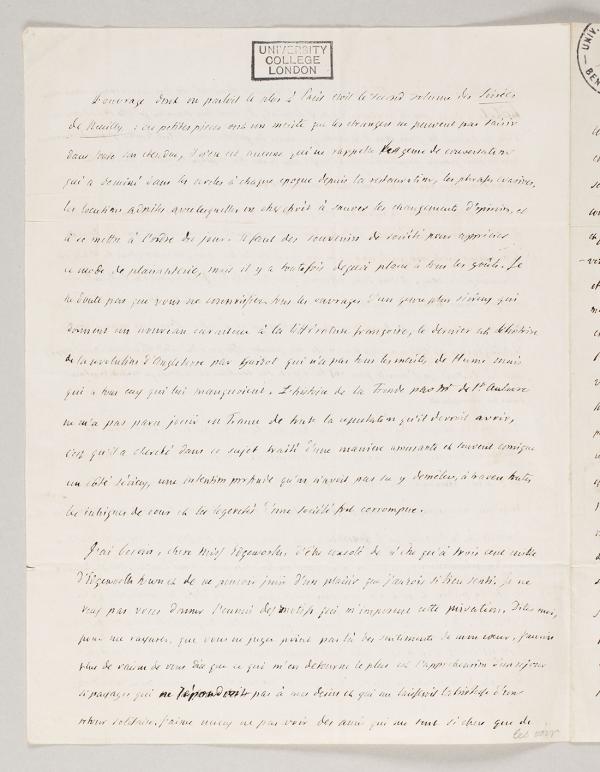 UNIVERSITY
COLLEGE
LONDON
UNIV.
BEN
L'ouvrage dont on parloit le plus à Paris etoit le second volume des Soirées
de Neuilly; ces petites pieces ont un merite que les etrangers ne peuvent pas saisir
dans toute son etendue, il n'en est aucune qui ne rappelle le genre de conversation
qui a dominé dans les cercles à chaque epoque depuis la restauration, les phrases
les locutions admises avec lesquelles on cherchoit à sauver les changements d'opinion, et
à se mettre à l'ordre du jour. Il faut des souvenirs de société pour apprécier
ce mode de plaisanterie, mais il y a toutefois dequoi plaire à tous les goûts. Je
ne doute pas que vous ne connoissiez tous les ouvrages d'un genre plus sérieux qui
donnent un nouveau caractere à la littérature françoise, le dernier est l'histoire
de la revolution d'Angleterre par Guizot qui n'a pas tous les merites de Hume mais
qui a tous ceux qui lui manquoient. L'histoire de la Fronde par Mr de St Aulaire
ne m'a pas paru jouir en France de toute la reputation qu'il devroit avoir,
c'est qu'il a cherché dans ce sujet traité d'une maniere amusante et souvent comique
un côté sérieux, une intention profonde qu'on n'avoit pas su y demêler, à travers toutes
les intrigues de cour et les legeretés d'une société fort corrompue.
J'ai besoin, chere Miss Edgeworth, d'être consolé de n'être qu'à trois cent milles
d'Edgeworth town et de ne pouvoir jouir d'un plaisir que j'aurois si bien senti. Je ne
veux pas vous donner l'ennui des motifs qui m'imposent cette privation. Dites moi,
pour me rassurer, que vous ne jugez point par là des sentiments de mon coeur. J'aurois
plus de raison de vous dire que ce qui m'en detourne le plus est l'apprehension d'un sejour
qui ne repondroit pas à mes desirs et qui me laisseroit la tristesse d'un
retour solitaire. J'aime mieux ne pas voir des amis qui me sont si chers que de
les voir